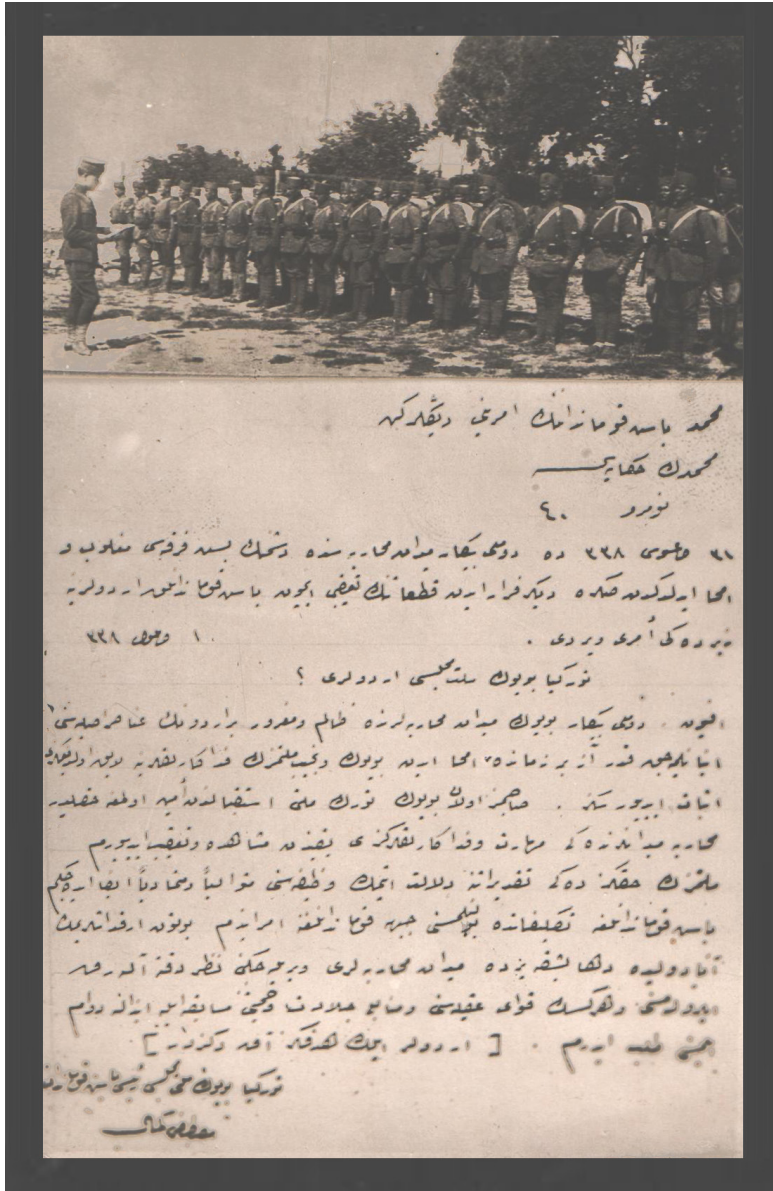 محمد باش قوماندانك امريني ديڭلركن
محمدك حكايه‌سى
نومرو ٤٠
٣١ اغستوس ٣٣٨ ده دوملى پيكار ميدان محاربه سنده دشمنك بش فرقه‌سى مغلوب و
امحا ايدلدكدن صكره ديكر فرار ايدن قطعاتنك تعقيبى ايچون باش قوماندانلق اردولرينه
زيرده كى أمرى ويردى . ١ ٣٣٨
توركيا بويوك ملت مجلسى اردولرى
افيون . دوملى پيكار بويوك ميدان محاربه لرنده ظالم ومغرور بر اردونك عناصر اصليه‌سنى
اينانيلميه‌جق قدر آز بر زمانده امحا ايتديكز بويوك ونجيب ملتمزك فداكارلقلرينه لايق اولديغكزى
اثبات ايديورسكز . صاحبمز اولان بويوك تورك ملتى استقبالندن أمين اولمغه حقليدر
محاربه ميدانلرنده كى مهارت وفداكارلقلركزى يقيندن مشاهده وتعقيب ايديورم
ملتمزك حقكزده كى تقديراتنه دلالت ايتمك وظيفه‌سنى متوالياً ومتمادياً ايفا ايده‌جكم
باش قوماندانلغه تكليفاتده بولنلمسنى جبهه قوماندانلغنه امر ايتدم بوتون ارقداشلريمك
آناطوليده دها باشقه ميدان محاربه لرى ويريله‌جكنى نظر دقته آله‌رق
ايلرولمسنى وهركسك قواى عقليه‌سنى ومنابع جلادت وحميتنى مسابقه ايله ابذاله دوام
ايتمسنى طلب ايدرم . [ اردولر ايلك هدفكز آق دكزدر ]
توركيا بويوك ملت مجلسى رئيسى باش قوماندان
مصطفى كمال